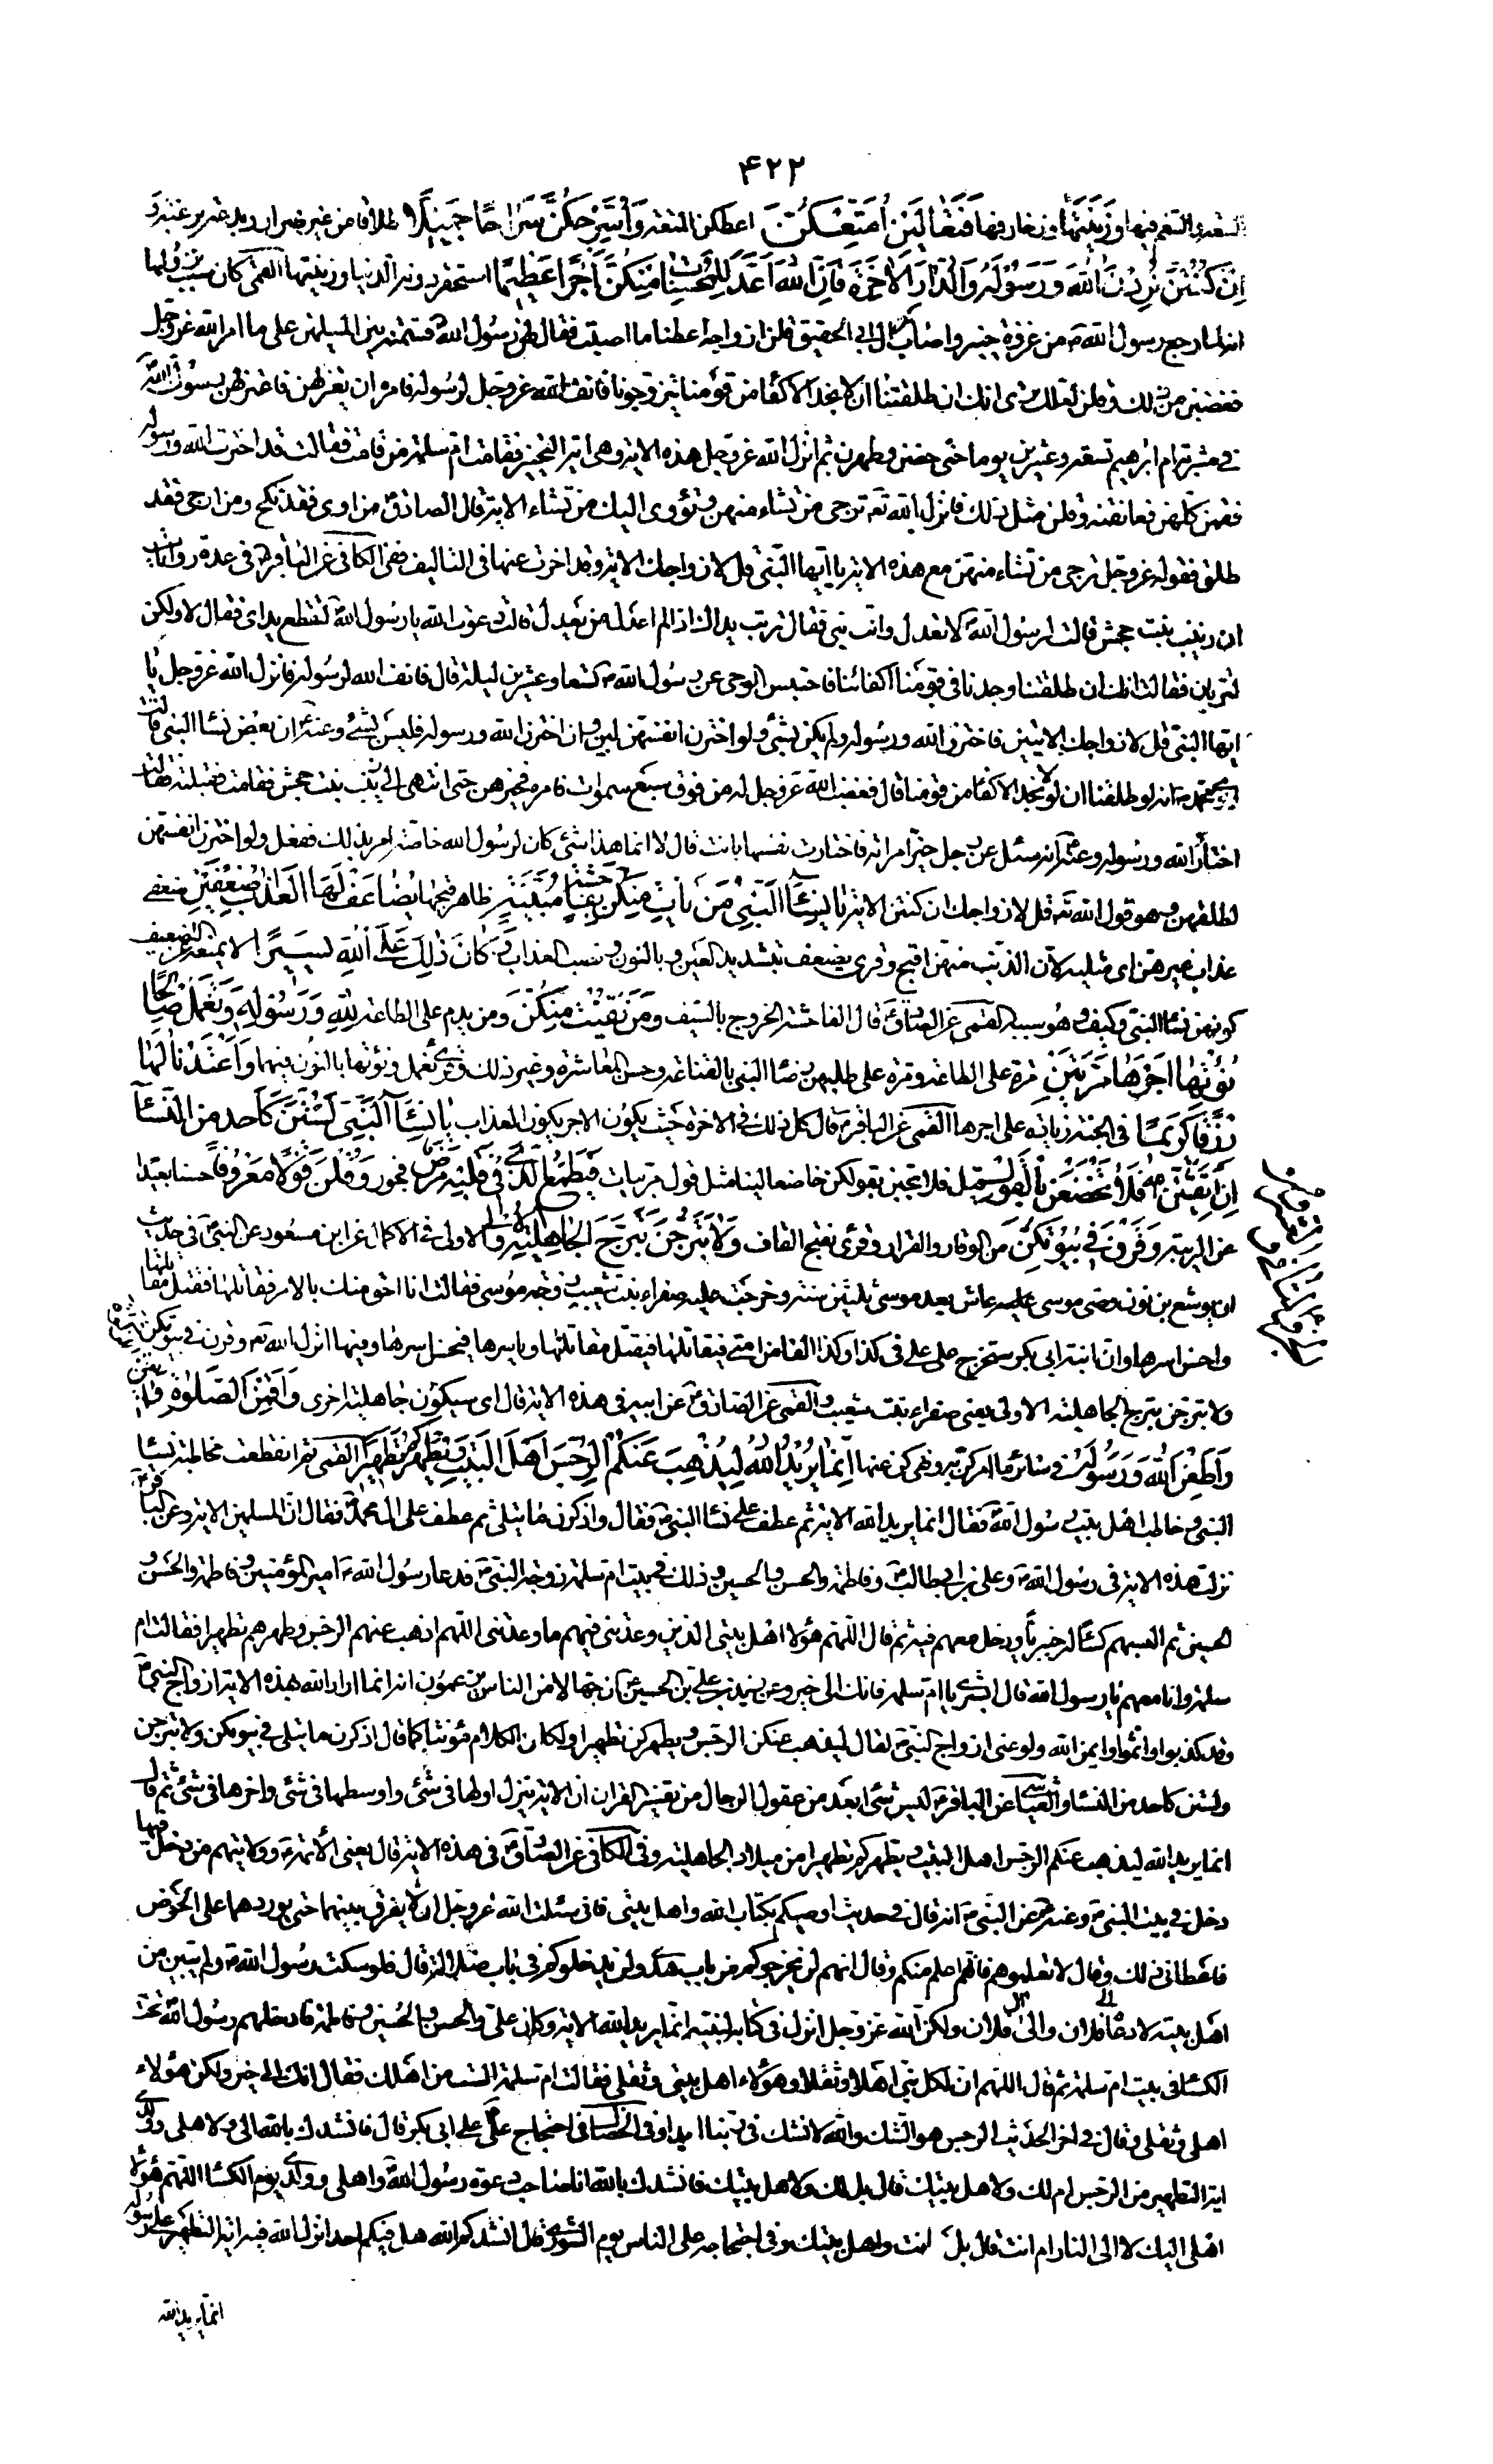 ۴۲۲
السعة والتنعم فيها وَزِينَتَهَا وزخارفها فَتَعَالَيْنَ أُمَتِّعْكُنَّ اعطكن المتعة وَأُسَرِّحْكُنَّ سَرَاحًا جَمِيلًا طلاقا من غير ضرار وبدعة
إِنْ كُنْتُنَّ تُرِدْنَ اللَّهَ وَرَسُولَهُ وَالدَّارَ الْآخِرَةَ فَإِنَّ اللَّهَ أَعَدَّ لِلْمُحْسِنَاتِ مِنْكُنَّ أَجْرًا عَظِيمًا استحقر دونه الدنيا وزينتها القمى كان سبب نزولها
انه لما رجع رسول الله ص من غزوة خيبر واصاب كنز ال ابي الحقيق قلن ازواجه اعطنا ما اصبت فقال لهن رسول الله ص قسمته بين المسلمين على ما امر الله عز وجل
فغضبن من ذلك وقلن لعلك ترى انك ان طلقتنا ان لا نجد الاكفاء من قومنا يتزوجونا فانف الله عز وجل لرسوله فامره ان يعتزلهن فاعتزلهن رسول الله ص
في مشربة ام ابرهيم تسعة وعشرين يوما حتى حضن وطهرن ثم انزل الله عز وجل هذه الاية وهي اية التخيير فقامت ام سلمة اول من قامت فقالت قد اخترت الله ورسوله
فقمن كلهن فعانقنه وقلن مثل ذلك فانزل الله تع ترجى من تشاء منهن وتؤوى اليك من تشاء الاية قال الصادق ع من اوى فقد نكح ومن ارجى فقد
طلق فقوله عز وجل ترجى من تشاء منهن مع هذه الاية يا ايها النبي قل لازواجك الاية وقد اخرت عنها في التاليف وفي الكافي عن الباقر ع في عدة روايات
ان زينب بنت جحش قالت لرسول الله ص لا تعدل وانت نبي فقال تربت يداك اذا لم اعدل من يعدل قالت دعوت الله يا رسول الله ليقطع يداى فقال لا ولكن
لتتربان فقالت انك ان طلقتنا وجدنا في قومنا اكفائنا فاحتبس الوحى عن رسول الله ص تسعا وعشرين ليلة قال فانف الله لرسوله فانزل الله عز وجل يا
ايها النبي قل لازواجك الايتين فاخترن الله ورسوله ولم يكن شيء ولو اخترن انفسهن لبن وان اخترن الله ورسوله فليس بشيء وعنه ع ان بعض نساء النبي قالت
ايرى محمد ص انه لو طلقنا ان لا نجد الاكفاء من قومنا قال فغضب الله عز وجل له من فوق سبع سموات فامره فخيرهن حتى انتهى الى زينب بنت جحش فقامت فقبلته وقالت
اختار الله ورسوله وعنه ع انه سئل عن رجل خير امراته فاختارت نفسها بانت قال لا انما هذا شيء كان لرسول الله خاصة امر بذلك ففعل ولو اخترن انفسهن
لطلقهن وهو قول الله تع قل لازواجك ان كنتن الاية يَا نِسَاءَ النَّبِيِّ مَنْ يَأْتِ مِنْكُنَّ بِفَاحِشَةٍ مُبَيِّنَةٍ ظاهر قبحها يُضَاعَفْ لَهَا الْعَذَابُ ضِعْفَيْنِ ضعفى
عذاب غيرهن اى مثليه لان الذنب منهن اقبح وقرئ يضعف بتشديد العين وبالنون ونصب العذاب وَكَانَ ذَلِكَ عَلَى اللَّهِ يَسِيرًا لا يمنعه عن التضعيف
كونهن نساء النبي وكيف وهو سببه القمى عن الصادق ع قال الفاحشة الخروج بالسيف وَمَنْ يَقْنُتْ مِنْكُنَّ ومن يدم على الطاعة لِلَّهِ وَرَسُولِهِ وَتَعْمَلْ صَالِحًا
نُؤْتِهَا أَجْرَهَا مَرَّتَيْنِ مرة على الطاعة ومرة على طلبهن رضاء النبي بالقناعة وحسن المعاشرة وغير ذلك وقرئ يعمل ونؤتها بالنون فيهما وَأَعْتَدْنَا لَهَا
رِزْقًا كَرِيمًا في الجنة زيادة على اجرها القمى عن الباقر ع قال كل ذلك في الاخرة حيث يكون الاجر يكون العذاب يَا نِسَاءَ النَّبِيِّ لَسْتُنَّ كَأَحَدٍ مِنَ النِّسَاءِ
إِنِ اتَّقَيْتُنَّ فَلَا تَخْضَعْنَ بِالْقَوْلِ فلا تجبن بقولكن خاضعا لينا مثل قول المريبات فَيَطْمَعَ الَّذِي فِي قَلْبِهِ مَرَضٌ فجور وَقُلْنَ قَوْلًا مَعْرُوفًا حسنا بعيدا
عن الريبة وَقَرْنَ فِي بُيُوتِكُنَّ من الوقار والقرار وقرئ بفتح القاف وَلَا تَبَرَّجْنَ تَبَرُّجَ الْجَاهِلِيَّةِ الْأُولَى في الاكمال عن ابن مسعود عن النبي ص في حديث
ان يوشع بن نون وصى موسى عليه عاش بعد موسى ثلثين سنة وخرجت عليه صفراء بنت شعيب زوجة موسى فقالت انا احق منك بالامر فقاتلها فقتل مقاتلتها
واحسن اسرها وان ابنة ابي بكر ستخرج على علي في كذا وكذا الفا من امتى فيقاتلها فيقتل مقاتلتها وياسرها فيحسن اسرها وفيها انزل الله تع وقرن في بيوتكن
ولا تبرجن تبرج الجاهلية الاولى يعني صفراء بنت شعيب والقمى عن الصادق ع عن ابيه في هذه الاية قال اى سيكون جاهلية اخرى وَأَقِمْنَ الصَّلَاةَ
وَأَطِعْنَ اللَّهَ وَرَسُولَهُ في سائر ما امركن به ونهيكن عنه إِنَّمَا يُرِيدُ اللَّهُ لِيُذْهِبَ عَنْكُمُ الرِّجْسَ أَهْلَ الْبَيْتِ وَيُطَهِّرَكُمْ تَطْهِيرًا القمى ثم انقطعت مخاطبة نساء
النبي وخاطب اهل بيت رسول الله ص فقال انما يريد الله الاية ثم عطف على نساء النبي ص فقال واذكرن ما يتلى ثم عطف على ال محمد ص فقال ان المسلمين الاية وعن الباقر ع
نزلت هذه الاية في رسول الله ص وعلي بن ابي طالب ع وفاطمة والحسن والحسين وذلك في بيت ام سلمة زوجة النبي ص فدعا رسول الله ص امير المؤمنين وفاطمة والحسن و
الحسين ثم البسهم كساء له خيبريا ودخل معهم فيه ثم قال اللهم هؤلاء اهل بيتى الذين وعدتنى فيهم ما وعدتنى اللهم اذهب عنهم الرجس وطهرهم تطهيرا فقالت ام
سلمة وانا معهم يا رسول الله قال ابشرى يا ام سلمة فانك الى خير وعن زيد بن علي بن الحسين ع ان جهالا من الناس يزعمون انه انما اراد الله بهذه الاية ازواج النبي ص
وقد كذبوا واثموا وايم الله ولو عنى ازواج النبي ص لقال ليذهب عنكن الرجس ويطهركن تطهيرا ولكان الكلام مؤنثا كما قال اذكرن ما يتلى في بيوتكن ولا تبرجن
ولستن كاحد من النساء والعياشي عن الباقر ع ليس شيء ابعد من عقول الرجال من تفسير القران ان الاية ينزل اولها في شيء واوسطها في شيء واخرها في شيء ثم قال
انما يريد الله ليذهب عنكم الرجس اهل البيت ويطهركم تطهيرا من ميلاد الجاهلية وفي الكافي عن الصادق ع في هذه الاية قال يعنى الائمة ع وولايتهم من دخل فيها
دخل في بيت النبي ص وعنه ع عن النبي ص انه قال في حديث اوصيكم بكتاب الله واهل بيتى فاني سئلت الله عز وجل ان لا يفرق بينهما حتى يوردهما على الحوض
فاعطانى ذلك وقال لا تعلموهم فانهم اعلم منكم وقال انهم لن يخرجوكم من باب هدى ولن يدخلوكم في باب ضلالة قال فلو سكت رسول الله ص ولم يبين من
اهل بيته لادعاها ال فلان وال فلان ولكن الله عز وجل انزل في كتابه لنبيه انما يريد الله الاية وكان علي والحسن والحسين وفاطمة فادخلهم رسول الله ص تحت
الكساء في بيت ام سلمة ثم قال اللهم ان لكل نبي اهلا وثقلا وهؤلاء اهل بيتى وثقلى فقالت ام سلمة الست من اهلك فقال انك الى خير ولكن هؤلاء
اهلى وثقلى وقال في اخر الحديث الرجس هو الشك والله لا نشك في ربنا ابدا وفي الخصال في احتجاج علي ع على ابي بكر قال فانشدك بالله الى ولاهلى وولدى
اية التطهير من الرجس ام لك ولاهل بيتك قال بل لك ولاهل بيتك قال فانشدك بالله انا صاحب دعوة رسول الله ص واهلى وولدى يوم الكساء اللهم هؤلاء
اهلى اليك لا الى النار ام انت قال بل انت واهل بيتك وفي احتجاجه على الناس يوم الشورى قال انشدكم الله هل فيكم احد انزل الله فيه اية التطهير على رسوله
انما يريد الله